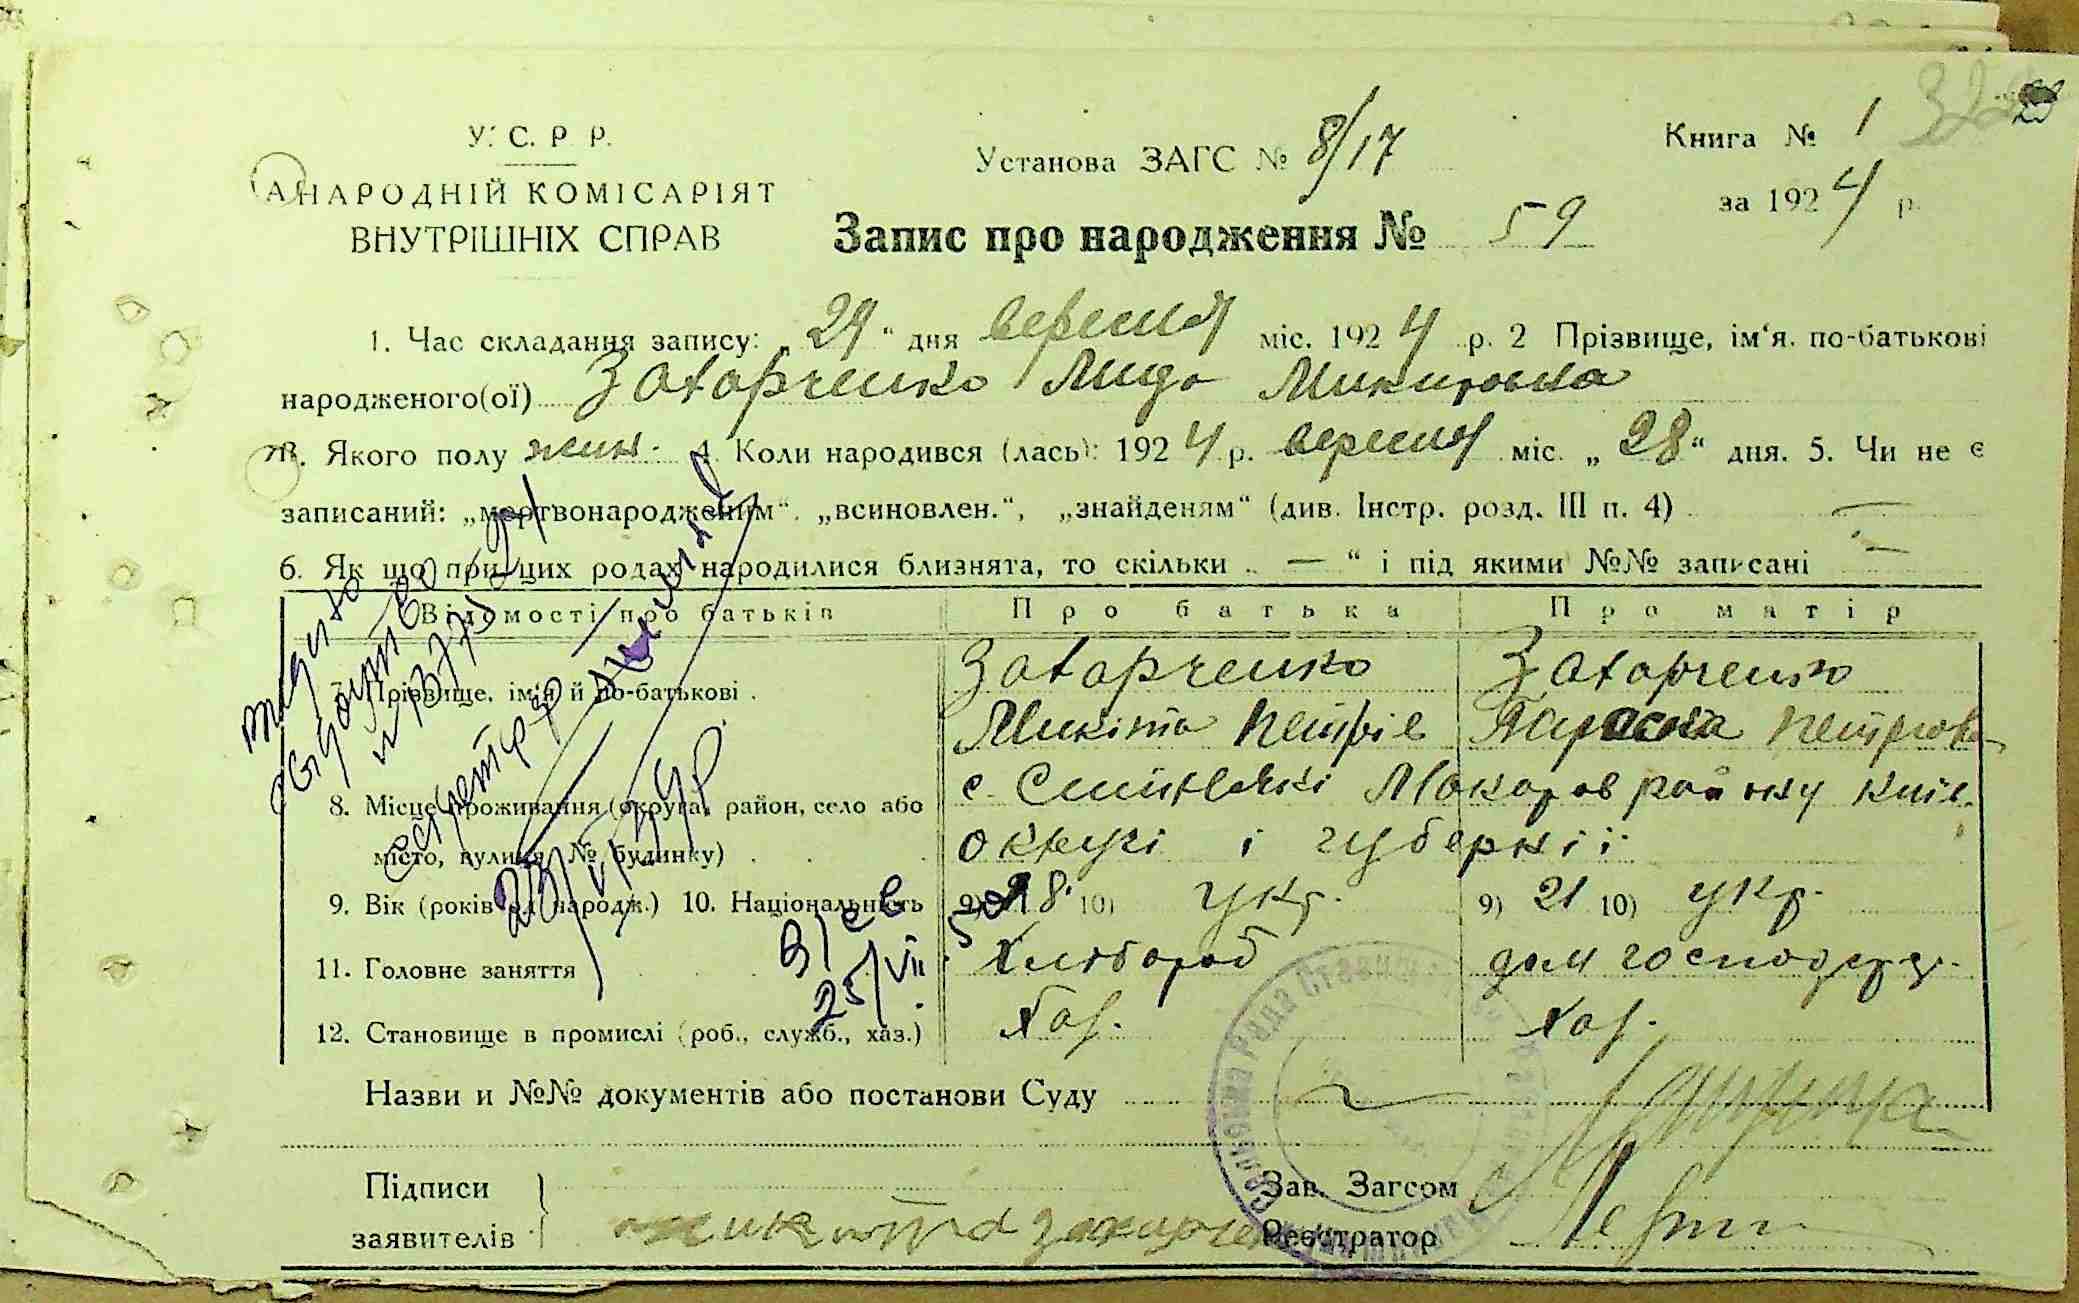 У. С. Р. Р.
НАРОДНІЙ КОМІСАРІЯТ
ВНУТРІШНІХ СПРАВ
Установа ЗАГС № 8/17
Книга № 1
за 1924 р.
Запис про народження № 59
1. Час складання запису: „29“ дня вересня міс. 1924 р. 2 Прізвище, ім‘я, по-батькові
народженого(ої) Захарченко Лида Микитовна
3. Якого полу жин. 4. Коли народився (лась): 1924 р. вересня міс. „28“ дня. 5. Чи не є
записаний: „мертвонародженим“, „всиновлен.“, „знайденям“ (див. Інстр. розд. III п. 4) —
6. Як що при цих родах народилися близнята, то скільки „ — “ і під якими №№ записані —
Відомості про батьків Про батька Про матір
7. Прізвище, ім‘я й по-батькові . Захарченко Захарченко
Микіта Петрів Параска Петровн
8. Місце проживання (округа, район, село або с. Макаров району Київ.
місто, вулиця, № будинку) . . . округі і губернії
9. Вік (років від народж.) 10. Національність 9) 28 10) укр. 9) 21 10) укр.
11. Головне заняття Хлібороб дом господарц.
12. Становище в промислі (роб., служб., хаз.) Хаз. Хаз.
Назви и №№ документів або постанови Суду
Підписи
заявителів Микита Захарче
Зав. Загсом
Реєстратор
Сільська Рада
видано
25/VII